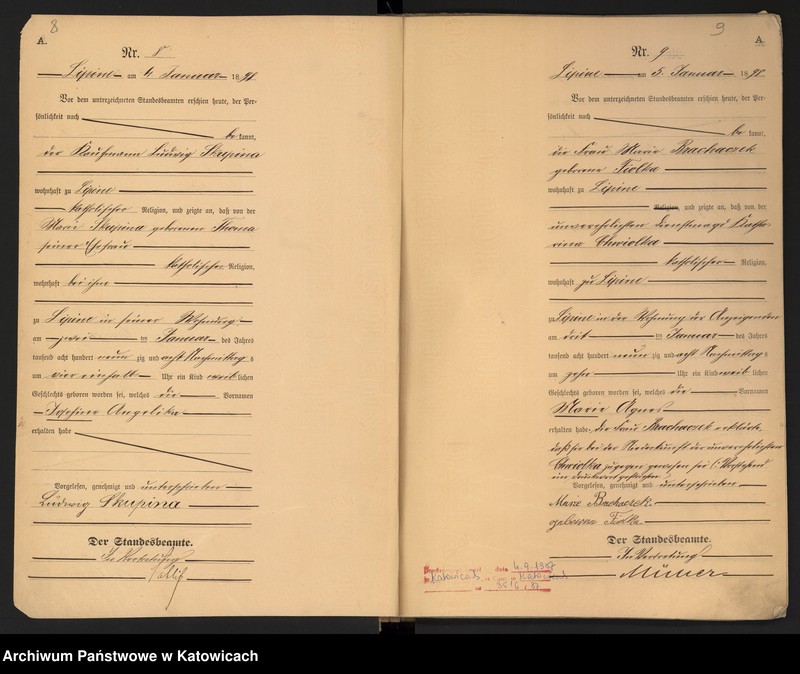 8
A.
Nr. 8
Lipine am 4 Januar 1898
Vor dem unterzeichneten Standesbeamten erschien heute, der Per-
sönlichkeit nach
be kannt,
der Kaufmann Ludwig Skupina
wohnhaft zu Lipine
katholischer Religion, und zeigte an, daß von der
Marie Skupina geborenen Thoma
seiner Ehefrau
katholischer Religion,
wohnhaft bei ihm
zu Lipine in seiner Wohnung
am zwei ten Januar des Jahres
tausend acht hundert neun zig und acht Nachmittag s
um vier einhalb Uhr ein Kind weib lichen
Geschlechts geboren worden sei, welches die Vornamen
Josefine Angelika
erhalten habe
Vorgelesen, genehmigt und unterschrieben
Ludwig Skupina
Der Standesbeamte.
In Vertretung
9
A.
Nr. 9
Lipine am 5. Januar 1898
Vor dem unterzeichneten Standesbeamten erschien heute, der Per-
sönlichkeit nach
be kannt,
die Frau Marie Brachaczek
geborene Fiolka
wohnhaft zu Lipine
Religion, und zeigte an, daß von der
unverehelichten Dienstmagd Katha-
rina Chwiolka
katholischer Religion,
wohnhaft zu Lipine
zu Lipine in der Wohnung der Anzeigenden
am drit ten Januar des Jahres
tausend acht hundert neun zig und acht Nachmittag s
um zehn Uhr ein Kind weib lichen
Geschlechts geboren worden sei, welches die Vornamen
Marie Agnes
erhalten habe. die Frau Brachaczek erklärte,
daß sie bei der Niederkunft der unverehelichten
Chwiolka zugegen gewesen sei (: Vorstehend
ein Druckwort gestrichen
Vorgelesen, genehmigt und unterschrieben
Marie Brachaczek
geborene Fiolka
Der Standesbeamte.
In Vertretung
Müller
Katowicach
Archiwum Państwowe w Katowicach